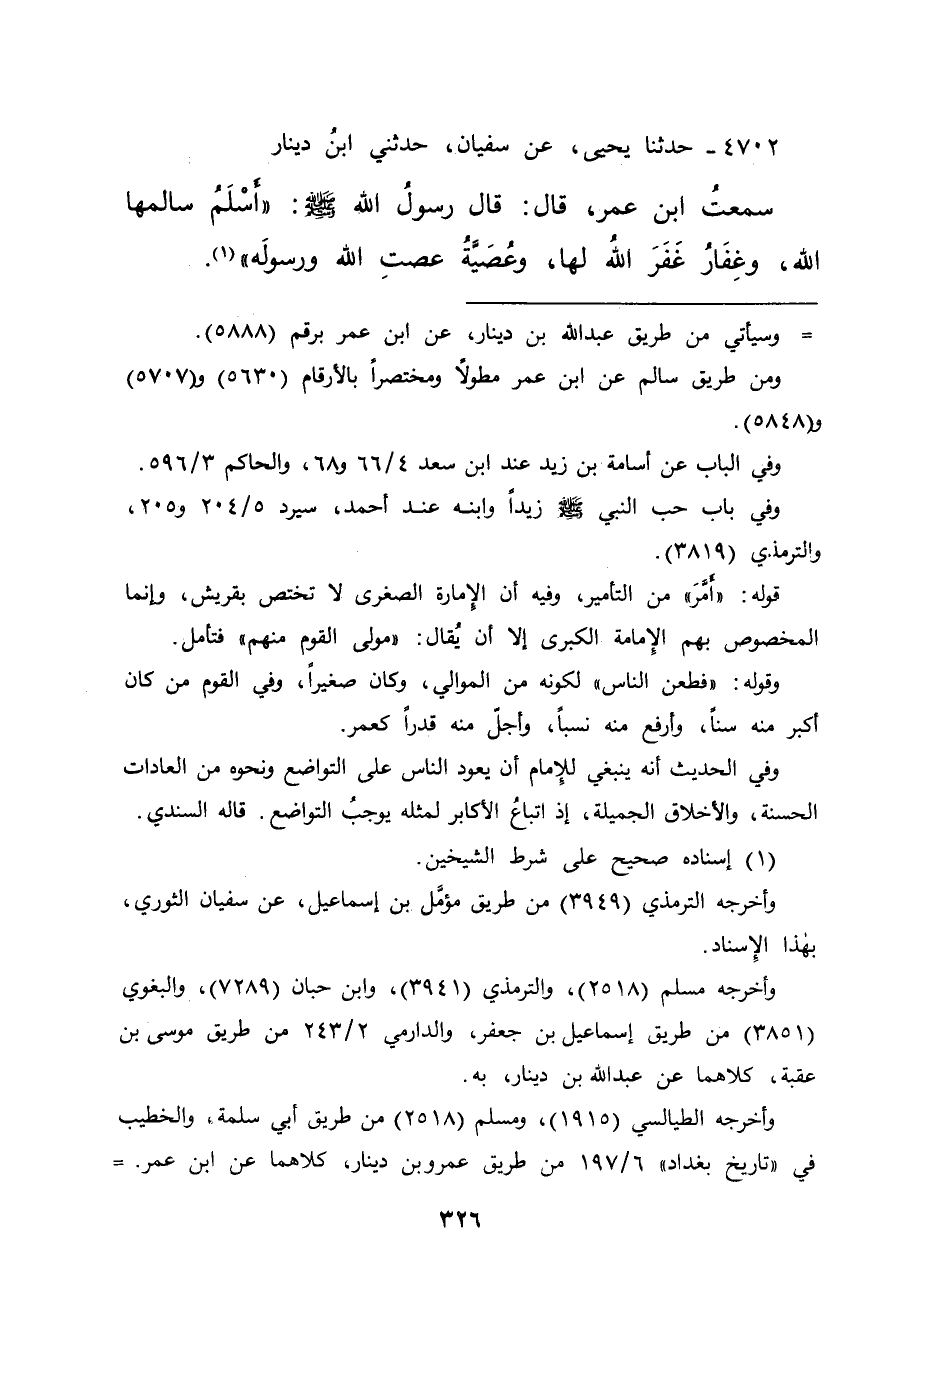 ٤٧٠٢ ـ حدثنا يحيى، عن سفيان، حدثني ابنُ دينار
سمعتُ ابن عمر، قال: قال رسولُ الله ﷺ: «أَسْلَمُ سالمها
الله، وغِفَارُ غَفَرَ اللهُ لها، وعُصَيَّةُ عصتِ الله ورسولَه»(١).
= وسيأتي من طريق عبدالله بن دينار، عن ابن عمر برقم (٥٨٨٨).
ومن طريق سالم عن ابن عمر مطولاً ومختصراً بالأرقام (٥٦٣٠) و(٥٧٠٧)
و(٥٨٤٨).
وفي الباب عن أسامة بن زيد عند ابن سعد ٦٦/٤ و٦٨، والحاكم ٥٩٦/٣.
وفي باب حب النبي ﷺ زيداً وابنه عند أحمد، سيرد ٢٠٤/٥ و٢٠٥،
والترمذي (٣٨١٩).
قوله: «أَمَّرَ» من التأمير، وفيه أن الإِمارة الصغرى لا تختص بقريش، وإنما
المخصوص بهم الإِمامة الكبرى إلا أن يُقال: «مولى القوم منهم» فتأمل.
وقوله: «فطعن الناس» لكونه من الموالي، وكان صغيراً، وفي القوم من كان
أكبر منه سناً، وأرفع منه نسباً، وأجلّ منه قدراً كعمر.
وفي الحديث أنه ينبغي للإِمام أن يعود الناس على التواضع ونحوه من العادات
الحسنة، والأخلاق الجميلة، إذ اتباعُ الأكابر لمثله يوجبُ التواضع. قاله السندي.
(١) إسناده صحيح على شرط الشيخين.
وأخرجه الترمذي (٣٩٤٩) من طريق مؤمَّل بن إسماعيل، عن سفيان الثوري،
بهٰذا الإِسناد.
وأخرجه مسلم (٢٥١٨)، والترمذي (٣٩٤١)، وابن حبان (٧٢٨٩)، والبغوي
(٣٨٥١) من طريق إسماعيل بن جعفر، والدارمي ٢٤٣/٢ من طريق موسى بن
عقبة، كلاهما عن عبدالله بن دينار، به.
وأخرجه الطيالسي (١٩١٥)، ومسلم (٢٥١٨) من طريق أبي سلمة، والخطيب
في «تاريخ بغداد» ١٩٧/٦ من طريق عمرو بن دينار، كلاهما عن ابن عمر. =
٣٢٦